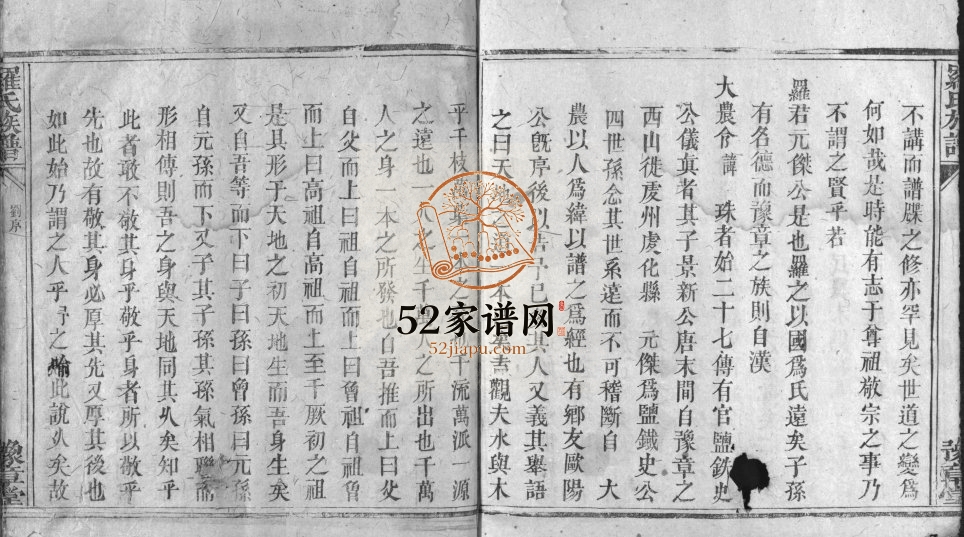 羅氏族譜
豫章堂
不講而譜牒之修亦罕見矣世道之變為
何如哉是時能有志于尊祖敬宗之事乃
不謂之賢乎若
羅君元傑公是也羅之以國為氏遠矣子孫
有名德而豫章之族則自漢
大農令諱 珠者始二十七傳有官鹽鉄史
公儀真者其子景新公唐末間自豫章之
西山徙虔州虔化縣 元傑為鹽鐵史公
四世孫念其世系遠而不可稽斷自 大
農以人為緯以譜之為經也有鄉友歐陽
公既序後以
其人又義其舉語
之曰天
本
觀夫水與木
乎千枝萬
十流萬派一源
之遠也一人之生千
人之所出也千萬
人之身一本之所發也自吾推而上曰父
自父而上曰祖自祖而上曰曾祖自曾祖
而上曰高祖自高祖而上至千厥初之祖
是具形于天地之初天地生而吾身生矣
又自吾等而下曰子曰孫曰曾孫曰元孫
自元孫而下又子其子孫其孫氣相聯而
形相傳則吾之身與天地同其久矣知乎
此者敢不敬其身乎敬乎身者所以敬乎
先也故有敬其身必厚其先又厚其後也
如此始乃謂之人乎予之
此說久矣故
羅氏族譜
劉序
豫章堂
52家谱网
52jiapu.com